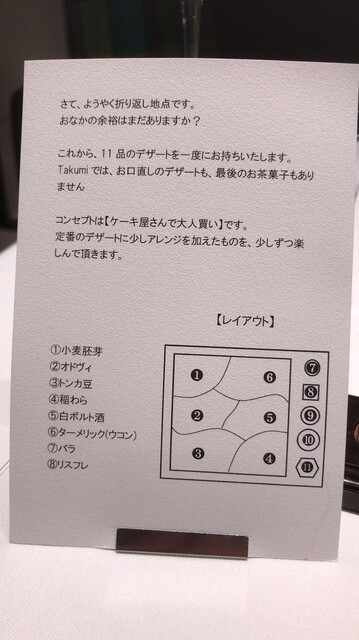 さて、ようやく折り返し地点です。
おなかの余裕はまだありますか？
これから、11品のデザートを一度にお持ちいたします。
Takumiでは、お口直しのデザートも、最後のお茶菓子もあり
ません
コンセプトは【ケーキ屋さんで大人買い】です。
定番のデザートに少しアレンジを加えたものを、少しずつ楽
しんで頂きます。
【レイアウト】
①小麦胚芽
②オドヴィ
③トンカ豆
④稲わら
⑤白ポルト酒
⑥ターメリック(ウコン)
⑦バラ
⑧リスフレ
❶
❻
❼
❽
❷
❺
❾
❿
❸
❹
⓫